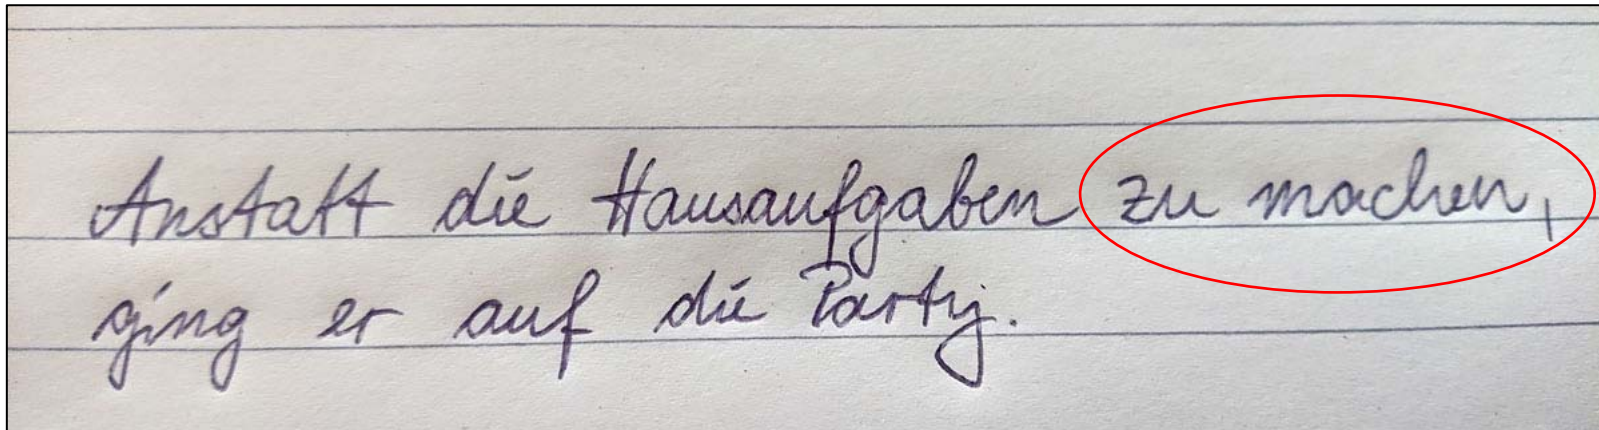 Anstatt die Hausaufgaben zu machen,
ging er auf die Party.